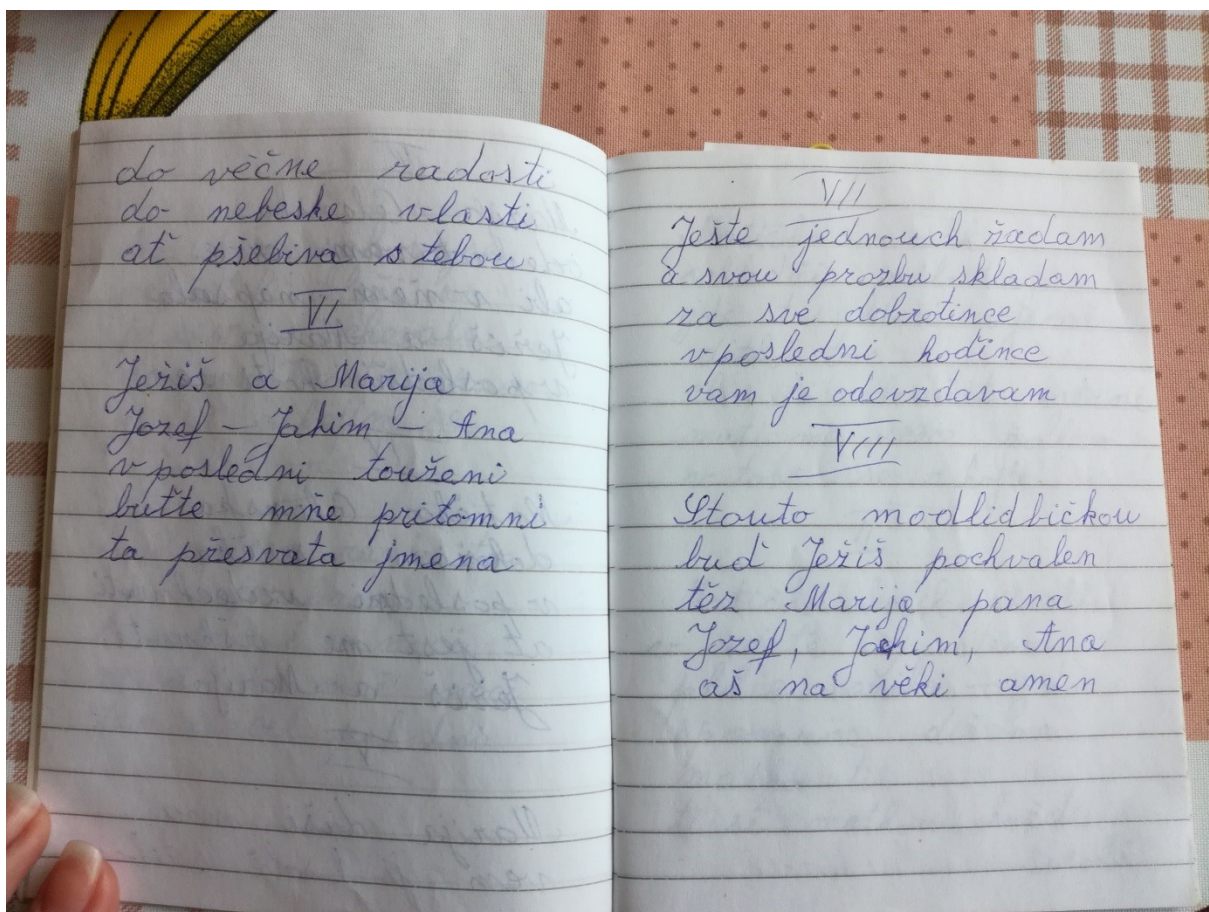 do věčne radosti
do nebeske vlasti
ať pšebiva s tebou
VI
Ježiš a Marija
Jozef - Jahim - Ana
v posledni touženi
buťte mňe pritomni
ta přesvata jmena
VII
Ješte jednouch žadam
a svou prozbu skladam
za sve dobrotince
v posledni hodince
vam je odevzdavam
VIII
Stouto modlidbičkou
buď Ježiš pochvalen
též Marija pana
Jozef, Jahim, Ana
aš na věki amen